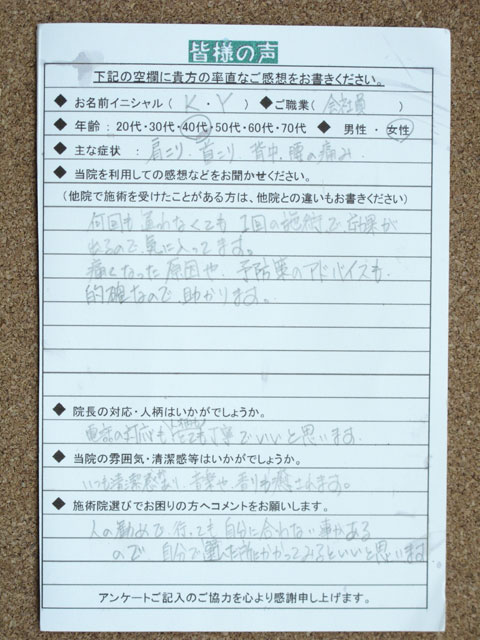 皆様の声
下記の空欄に貴方の率直なご感想をお書きください。
◆ お名前イニシャル ( K ・ Y ) ◆ご職業 ( 会社員 )
◆ 年齢 : 20代・30代・40代・50代・60代・70代 ◆ 男性 ・ 女性
◆ 主な症状 : 肩こり、首こり、背中、腰の痛み
◆ 当院を利用しての感想などをお聞かせください。
(他院で施術を受けたことがある方は、他院との違いもお書きください)
何回も通わなくても 1回の施術で効果が
出るので、気に入ってます。
痛くなった原因や、予防策のアドバイスも
的確なので、助かります。
◆ 院長の対応・人柄はいかがでしょうか。
電話の対応も とても丁寧でいいと思います。
◆ 当院の雰囲気・清潔感等はいかがでしょうか。
いつも清潔感あり、音楽や、香りも癒されます。
◆ 施術院選びでお困りの方へコメントをお願いします。
人の勧めで、行っても 自分に合わない事がある
ので 自分で選んだ所にかかってみるといいと思います。
アンケートご記入のご協力を心より感謝申し上げます。